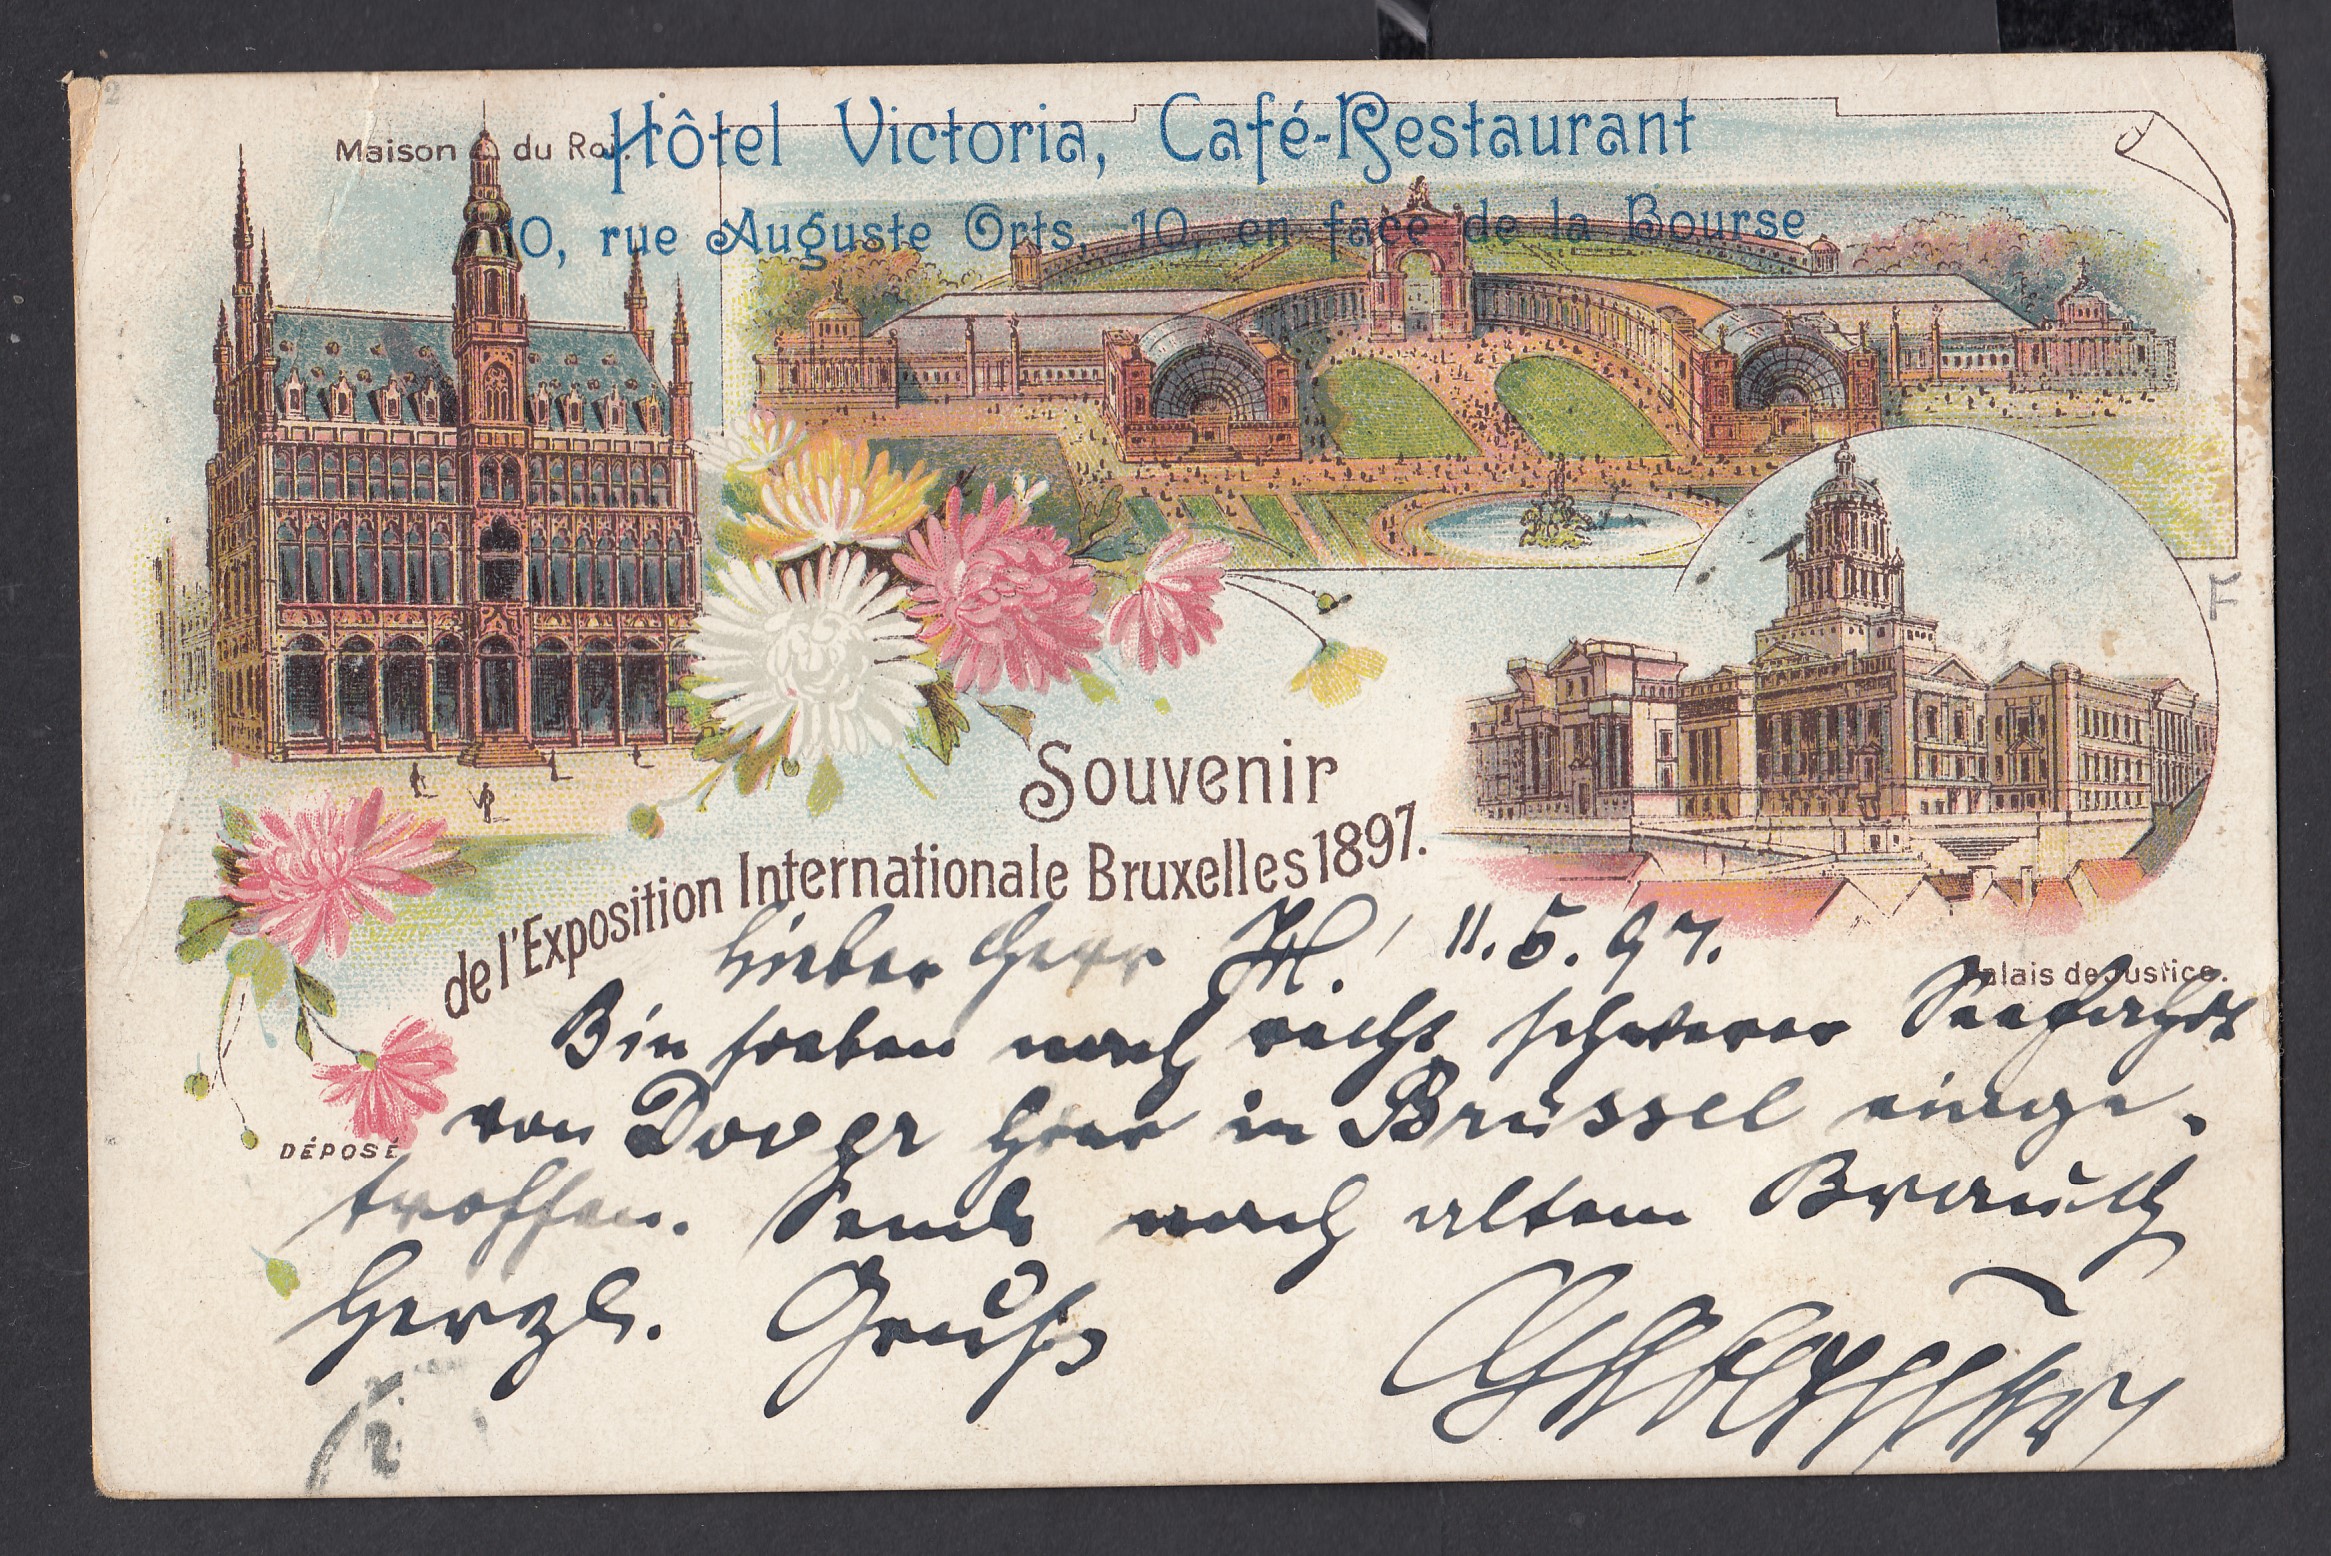 Hôtel Victoria, Café-Restaurant
Maison du Roi.
10, rue Auguste Orts, 10, en face de la Bourse
Souvenir
de l'Exposition Internationale Bruxelles 1897.
Palais de Justice.
DÉPOSÉ
Lieber Herr H.! 11.5.97.
Bin soeben nach recht schwerer Seefahrt
von Dover hier in Brüssel einge-
troffen. Sende nach altem Brauch
herzl. Gruß
F
2